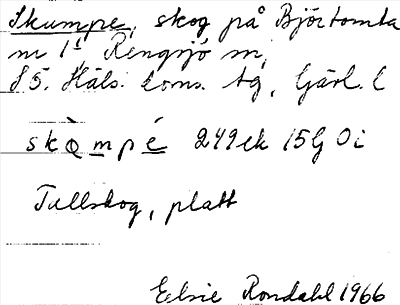 Skumpe, skog på Björtomta
nr 1¹ Rengsjö sn,
S Ö. Häls. doms. tg, Gävl. l
skɷ̀mpé 249ek 15G Oi
Tallskog, platt
Elsie Rondahl 1966